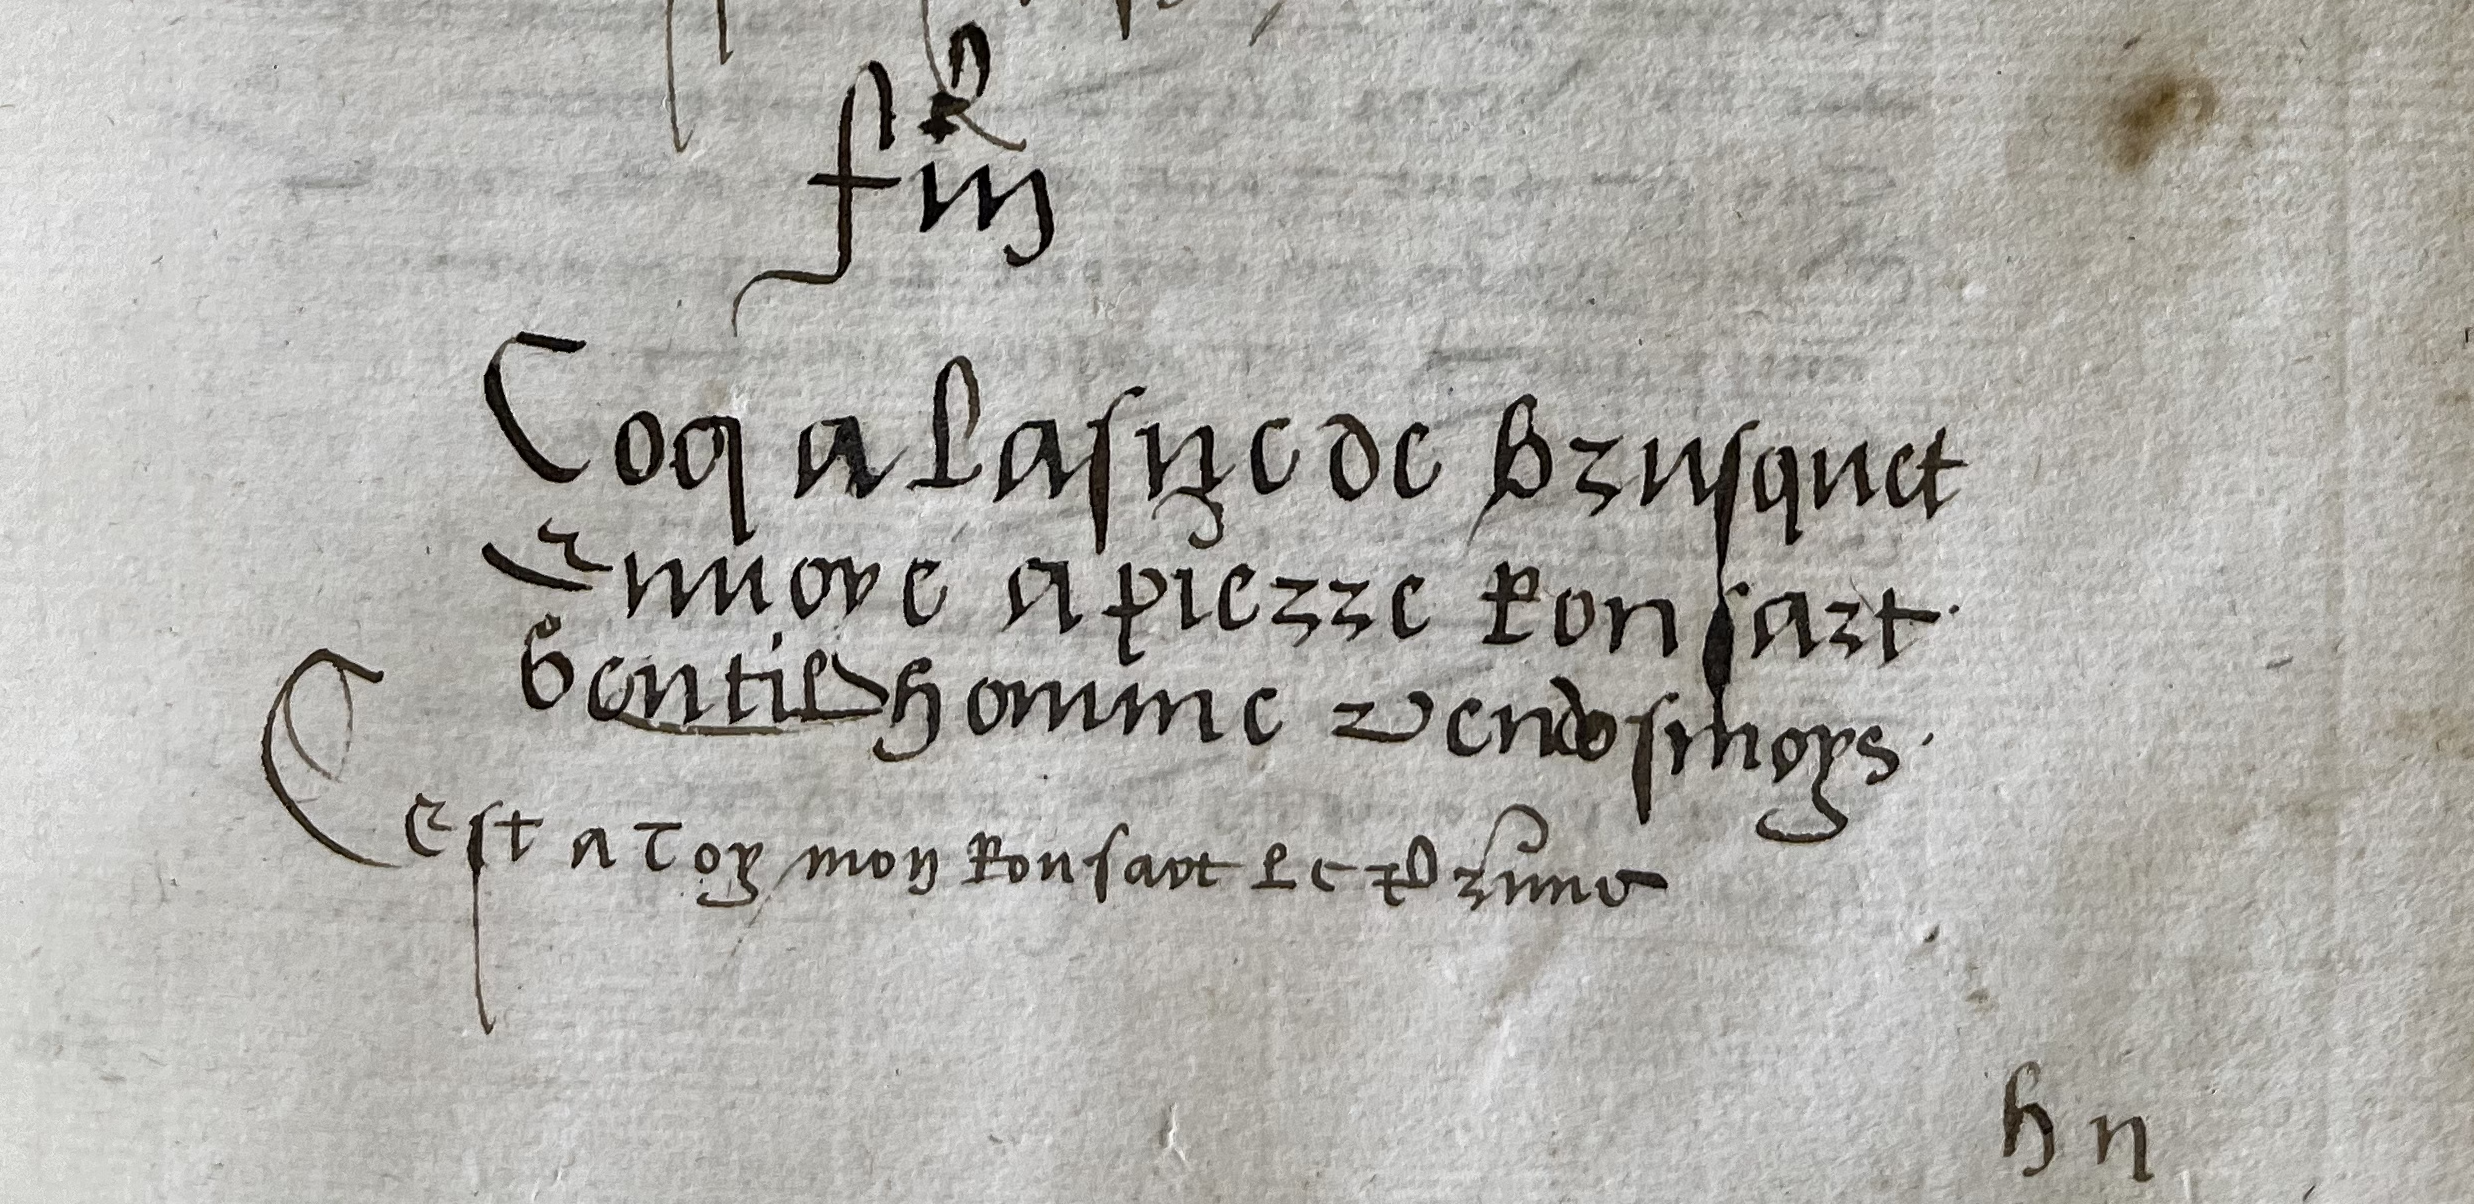 fin
Coq a Lasne de Brusquet
Enuoye a pierre Ronsart
Gentilhomme vendosmoys
Cest a Toy mon Ronsart Le
hn